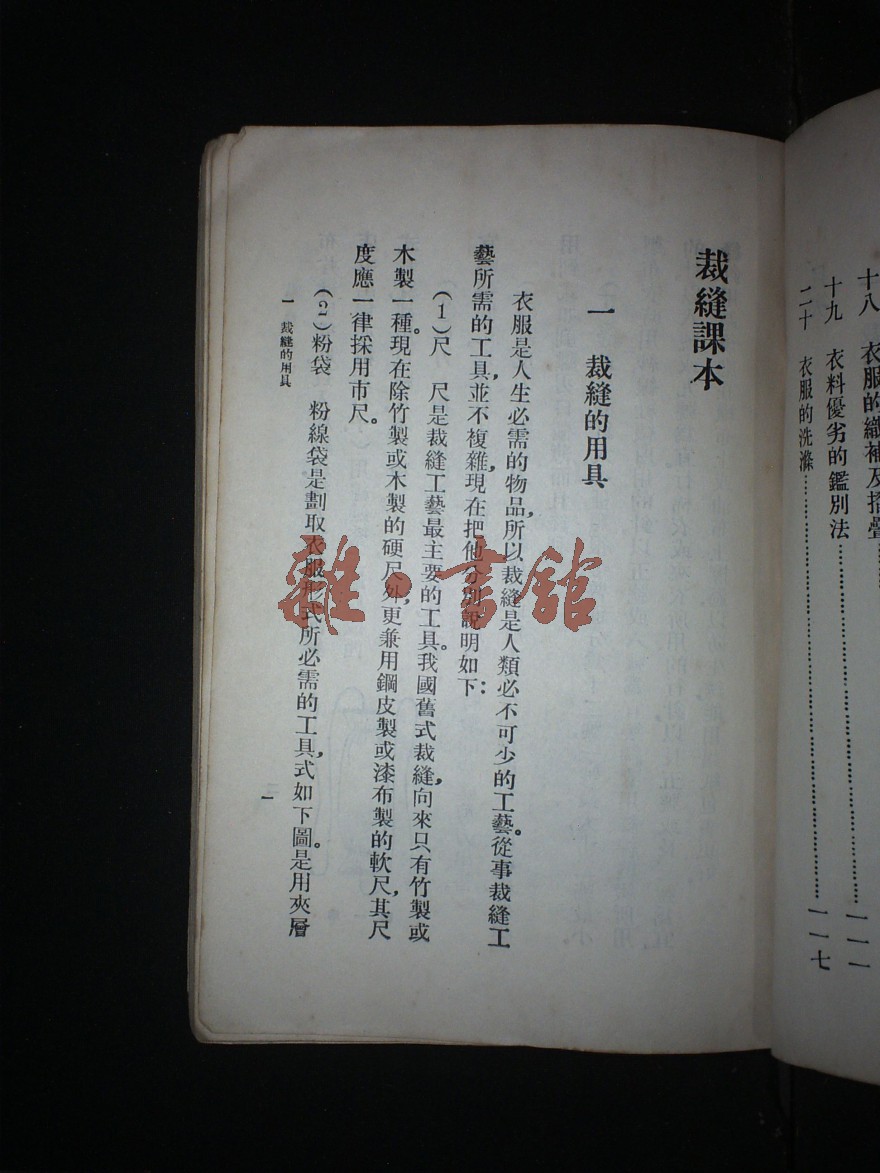 十八 衣服的織補及摺疊
十九 衣料優劣的鑑別法………一一一
二十 衣服的洗滌………一一七
裁縫課本
一 裁縫的用具
衣服是人生必需的物品，所以裁縫是人類必不可少的工藝。從事裁縫工
藝所需的工具並不複雜，現在把他分別說明如下：
(1)尺 尺是裁縫工藝最主要的工具。我國舊式裁縫，向來只有竹製或
木製一種。現在除竹製或木製的硬尺外，更兼用鋼皮製或漆布製的軟尺，其尺
度應一律採用市尺。
(2)粉袋 粉線袋是劃取衣服形式所必需的工具，式如下圖。是用夾層
一 裁縫的用具
一
雜·書館